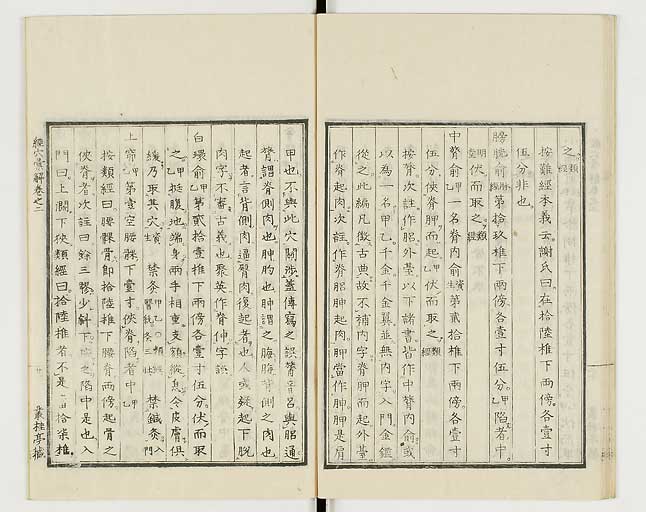 之類經
按難經本義云謝氏曰在拾陸椎下兩傍各壹寸
五分非也
膀胱俞甲脉第拾玖椎下兩傍各壹寸伍分甲陷者中
明堂伏而取之類經
中膂俞甲乙一名脊内俞資第貳拾椎下兩傍各壹寸
伍分俠脊胂而起甲乙伏而取之類經
按脊次註作䐃外臺以下諸書皆作中膂内俞或
以為一名甲乙千金千金翼並無内字入門金鑑
從之此編凡徵古典故不補内字脊胂而起外臺
作脊起肉次註作脊䐃胂起肉胛當作胂胛是肩
甲也不與此穴關涉蓋傳寫之誤膂音呂與䐃通
膂謂脊側肉也胂肕也胂謂之脢脢脊側之肉也
起者言背側肉逼臀肉復起者也人或疑起下脫
肉字不審古義也聚英作脊伸字誤
白環俞甲乙第貳拾壹椎下兩傍各壹寸伍分伏而取
之甲乙挺腹地端身兩手相重支額縱息令皮膚俱
緩乃取其穴資禁灸甲乙類經醫統灸三壯禁鍼灸入門
上窌甲乙第壹空腰髁下壹寸俠脊陷者中甲乙
按類經曰腰髁骨即拾陸椎下腰脊兩傍起骨之
俠脊者次註曰餘三髎少斜下按之陷中是也入
門曰上闊下狹類經曰拾陸椎者不是當拾柒椎
經穴彙解卷之二
叢桂亭藏